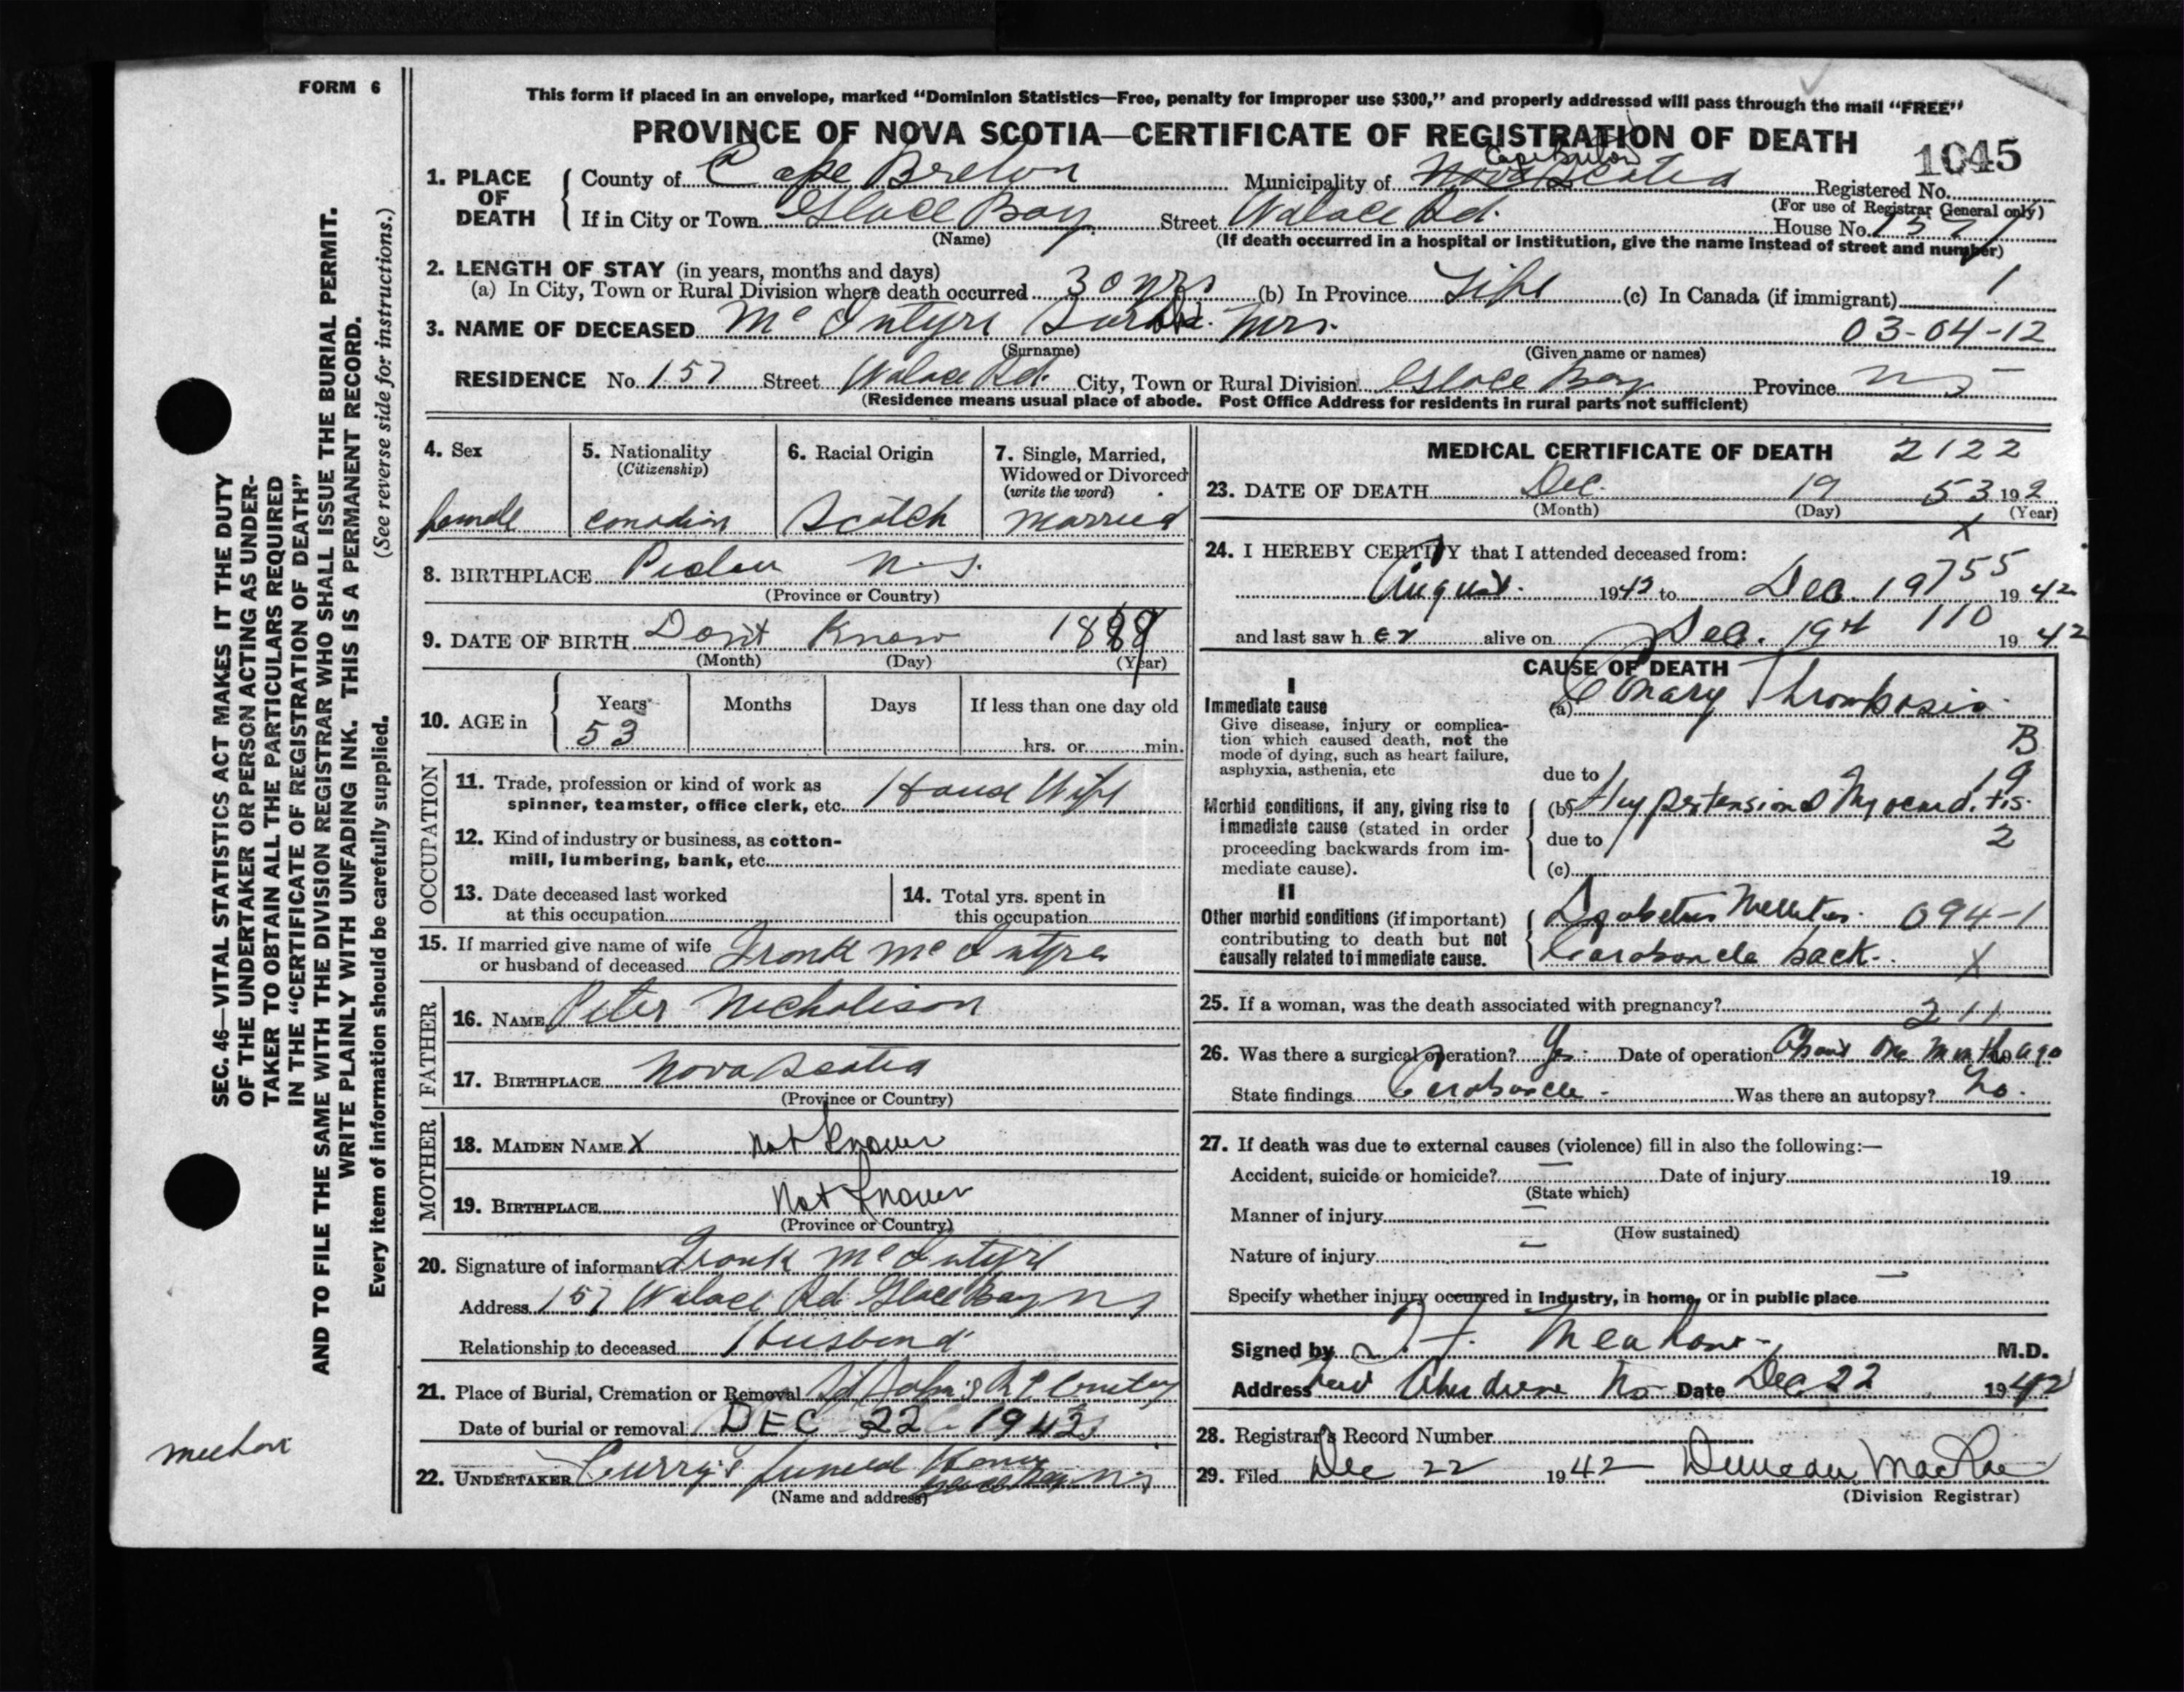 FORM 6
This form if placed in an envelope, marked “Dominion Statistics—Free, penalty for improper use $300,” and properly addressed will pass through the mail “FREE”
PROVINCE OF NOVA SCOTIA—CERTIFICATE OF REGISTRATION OF DEATH
1045
1. PLACE OF DEATH
County of Cape Breton Municipality of Nova Scotia Cape Breton Registered No.
(For use of Registrar General only)
If in City or Town Glace Bay Street Walace Rd. House No. 157
(Name) (If death occurred in a hospital or institution, give the name instead of street and number)
2. LENGTH OF STAY (in years, months and days)
(a) In City, Town or Rural Division where death occurred 30 yrs (b) In Province Life (c) In Canada (if immigrant) 1
3. NAME OF DECEASED McIntyre Sarah Mrs. 03-04-12
(Surname) (Given name or names)
RESIDENCE No. 157 Street Walace Rd. City, Town or Rural Division Glace Bay Province N S
(Residence means usual place of abode. Post Office Address for residents in rural parts not sufficient)
4. Sex 5. Nationality 6. Racial Origin 7. Single, Married,
(Citizenship) Widowed or Divorced
(write the word)
female Canadian Scotch Married
8. BIRTHPLACE Pictou N.S.
(Province or Country)
9. DATE OF BIRTH Don't Know 1889
(Month) (Day) (Year)
10. AGE in Years Months Days If less than one day old
53 hrs. or min.
OCCUPATION
11. Trade, profession or kind of work as
spinner, teamster, office clerk, etc. House Wife
12. Kind of industry or business, as cotton-
mill, lumbering, bank, etc.
13. Date deceased last worked
at this occupation
14. Total yrs. spent in
this occupation
15. If married give name of wife
or husband of deceased Frank McIntyre
FATHER
16. NAME Peter Nicholison
17. BIRTHPLACE Nova Scotia
(Province or Country)
MOTHER
18. MAIDEN NAME X Not Known
19. BIRTHPLACE Not Known
(Province or Country)
20. Signature of informant Frank McIntyre
Address 157 Walace Rd. Glace Bay N S
Relationship to deceased Husband
21. Place of Burial, Cremation or Removal St John's R C
Date of burial or removal DEC 22 1942
22. UNDERTAKER Curry's Funeral Home Glace Bay N S
(Name and address)
MEDICAL CERTIFICATE OF DEATH 2122
23. DATE OF DEATH Dec. 19 53 192
(Month) (Day) (Year)
X
24. I HEREBY CERTIFY that I attended deceased from:
August 1942 to Dec. 19 755 1942
and last saw her alive on Dec. 19th 110 1942
CAUSE OF DEATH
I
Immediate cause
Give disease, injury or complica-
tion which caused death, not the
mode of dying, such as heart failure,
asphyxia, asthenia, etc
(a) Thrombosis
B
due to 19
Morbid conditions, if any, giving rise to
immediate cause (stated in order
proceeding backwards from im-
mediate cause).
(b) Hypertension & Myocarditis.
due to 2
(c)
II
Other morbid conditions (if important)
contributing to death but not
causally related to immediate cause.
Diabetes Mellitus. 094-1
back. X
25. If a woman, was the death associated with pregnancy? 211
26. Was there a surgical operation? Yes. Date of operation About One Month ago
State findings Was there an autopsy? No.
27. If death was due to external causes (violence) fill in also the following:—
Accident, suicide or homicide? — Date of injury 19
(State which)
Manner of injury —
(How sustained)
Nature of injury —
Specify whether injury occurred in industry, in home, or in public place —
Signed by M.D.
Address New Date Dec 22 1942
28. Registrar's Record Number
29. Filed Dec 22 1942 Duncan MacRae
(Division Registrar)
SEC. 46—VITAL STATISTICS ACT MAKES IT THE DUTY
OF THE UNDERTAKER OR PERSON ACTING AS UNDER-
TAKER TO OBTAIN ALL THE PARTICULARS REQUIRED
IN THE “CERTIFICATE OF REGISTRATION OF DEATH”
AND TO FILE THE SAME WITH THE DIVISION REGISTRAR WHO SHALL ISSUE THE BURIAL PERMIT.
WRITE PLAINLY WITH UNFADING INK. THIS IS A PERMANENT RECORD.
Every item of information should be carefully supplied. (See reverse side for instructions.)